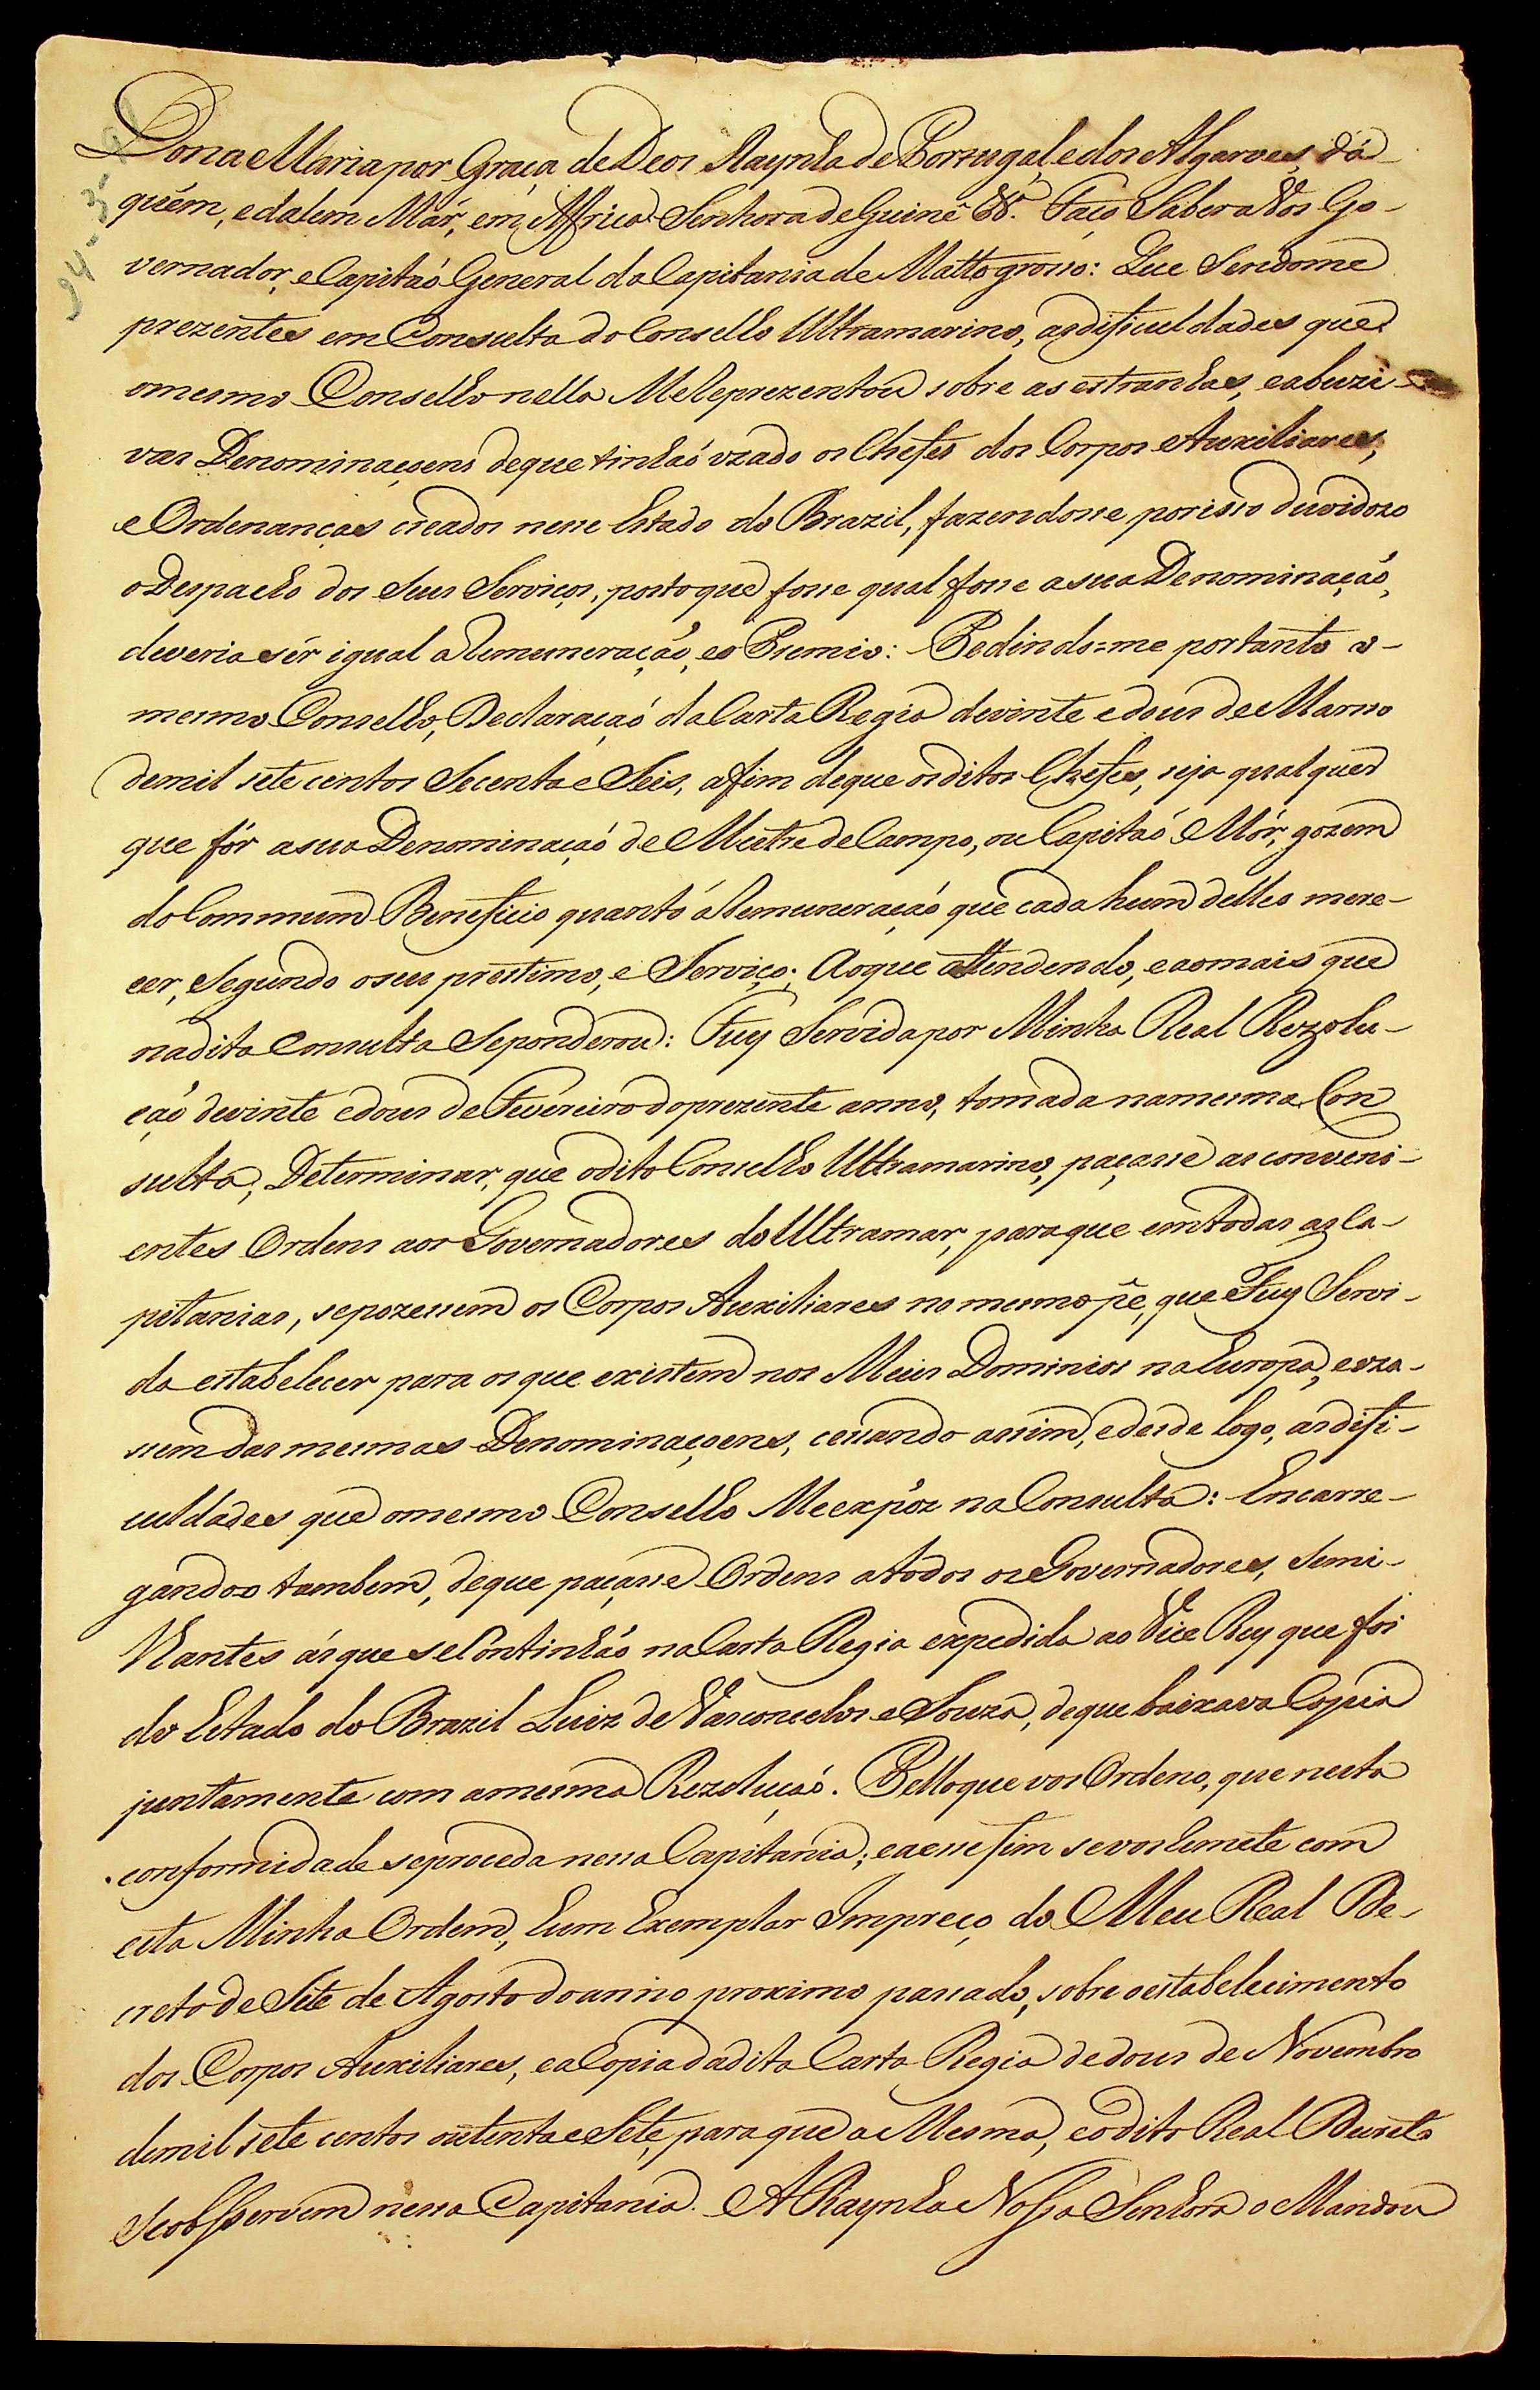 Dona Maria por Graça de Deos Raynha de Portugal, e dos Algarves, dá-
quém, e dalem Már, em Affrica Senhora de Guiné &ª. Faço Saber a Vos Go-
vernador, e Capitaó General da Capitania de Mattogrosso: Que Sendome
prezentes em Consulta do Conselho Ultramarino, as dificuldades que
o mesmo Conselho nella Me Reprezentou sobre as estranhas, e abuzi-
vas Denominaçoens de que tinhaó uzado os Chefes dos Corpos Auxiliares,
e Ordenanças creados nesse Estado do Brazil, fazendosse por isso duvidozo
o Despacho dos Seus Serviços, posto que fosse qual fosse a sua Denominaçaó,
deveria sér igual a Remuneraçaó, e o Premio: Pedindo=me portanto o-
mesmo Conselho, Declaraçaó da Carta Regia de vinte e dous de Marso
de mil sete centos Secenta e Seis, afim de que os ditos Chefes, seja qual quer
que fór a sua Denominaçaó de Mestre de Campo, ou Capitaó Mór, gozem
do Commum Beneficio quanto á Remuneraçaó que cada hum delles mere-
cer, Segundo o seu prestimo, e Serviço; Ao que attendendo, e ao mais que
na dita Consulta Se ponderou: Fuy Servida por Minha Real Rezolu-
çaó de vinte e dous de Fevereiro do prezente anno, tomada na mesma Con
sulta, Determinar, que o dito Conselho Ultramarino, paçasse as conveni-
entes Ordens aos Governadores do Ultramar, para que em todas as Ca-
pitanias, se pozessem os Corpos Auxiliares no mesmo pê, que Fuy Servi-
da estabelecer para os que existem nos Meus Dominios na Europa, e uza-
ssem das mesmas Denominaçoens, cessando assim, e desde logo, as difi-
culdades que o mesmo Conselho Me expôz na Consulta: Encarre-
gandoo tambem, de que paçasse Ordens a todos os Governadores, Semi-
lhantes ás que se Continhaó na Carta Regia expedida ao Vice Rey que foi
do Estado do Brazil Luiz de Vasconcelos e Souza, de que baixava Copia
juntamente com a mesma Rezoluçaó. Pello que vos Ordeno, que nesta
conformidade se proceda nessa Capitania; e a esse fim se vos Remete com
esta Minha Ordem, hum Exemplar Impreço do Meu Real De-
creto de Sete de Agosto do anno proximo passado, sobre o estabelecimento
dos Corpos Auxiliares, e a Copia da dita Carta Regia de dous de Novembro
de mil sete centos outenta e Sete, para que a Mesma, e o dito Real Decreto
Se obsservem nessa Capitania. A Raynha Nossa Senhora o Mandou